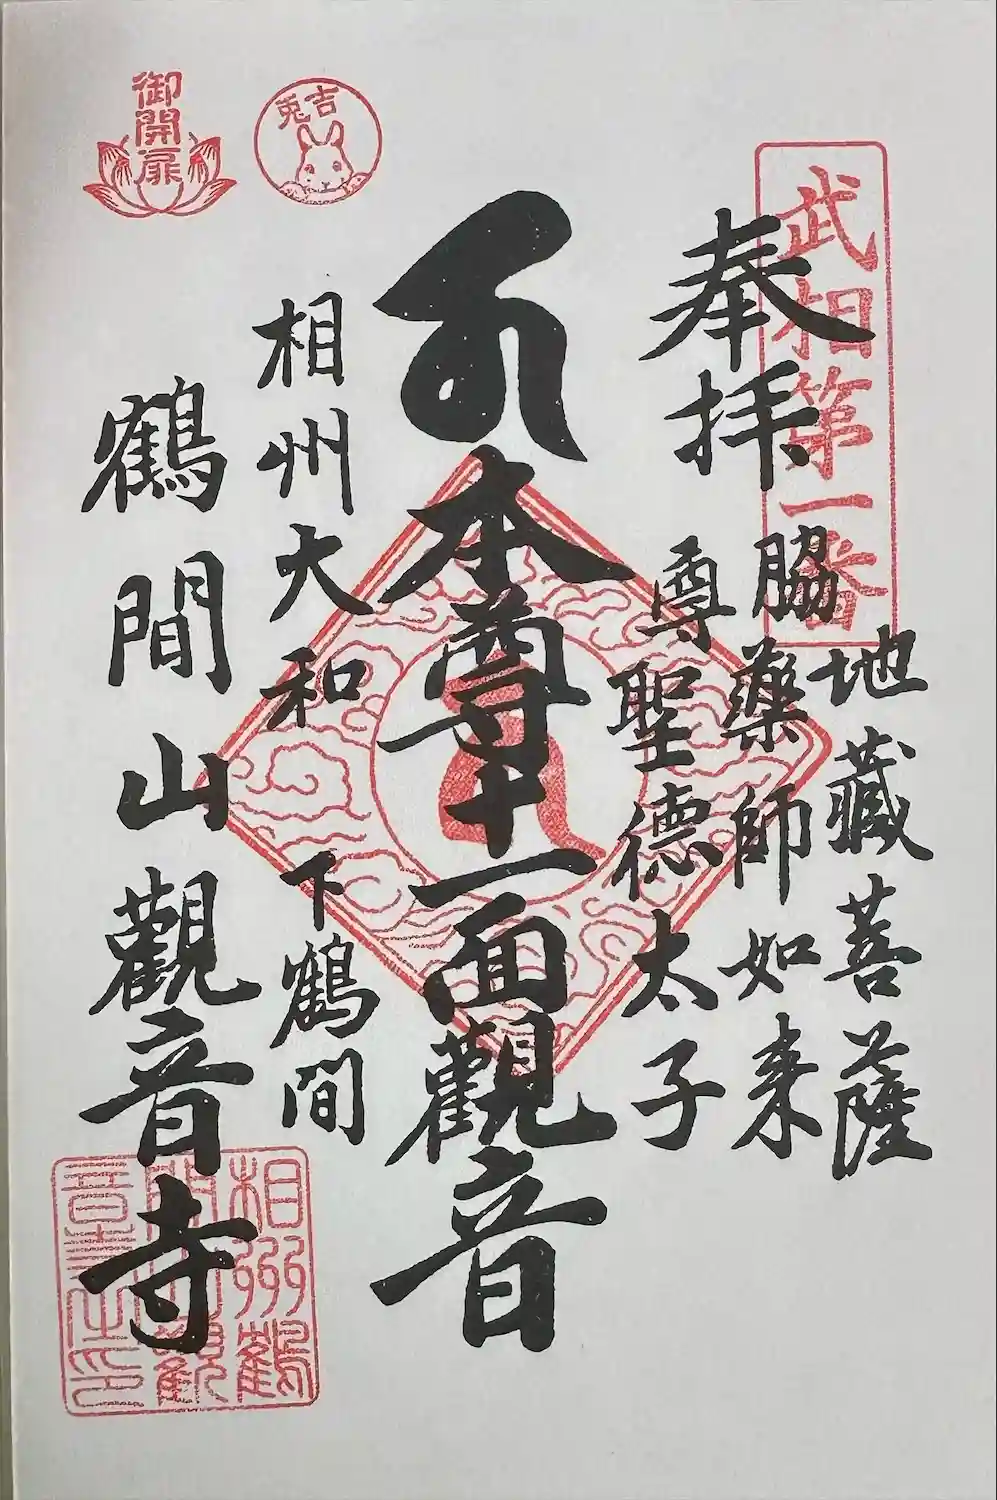 武相第一番
奉拝
地藏菩薩
脇薬師如来
尊聖徳太子
本尊十一面觀音
相州大和下鶴間
鶴間山觀音寺
吉兎
御開扉